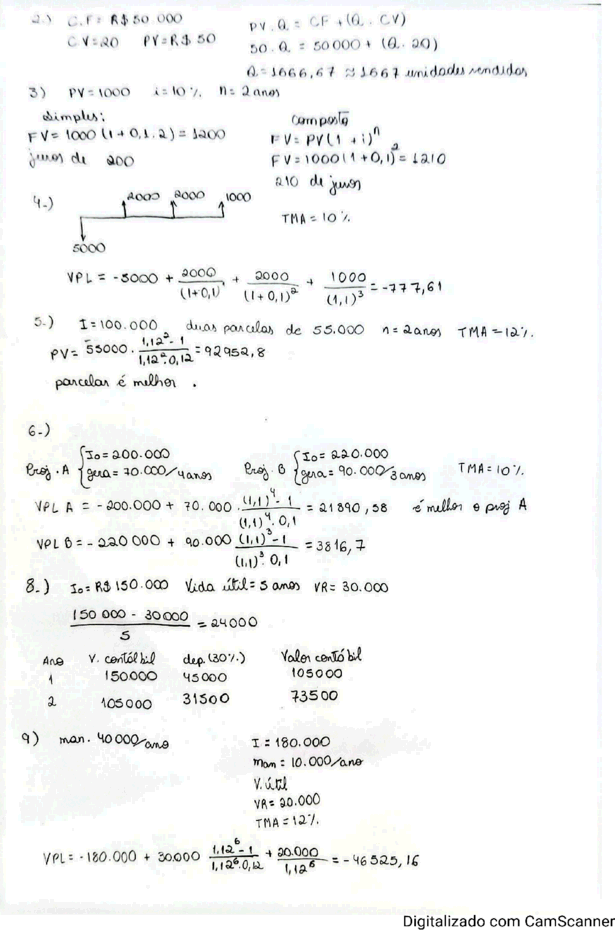 2.) C.F = R$ 50 000
CV = 20 PV = R$ 50
PV . Q = CF + (Q . CV)
50 . Q = 50000 + (Q . 20)
Q = 1666,67 ≈ 1667 unidades vendidas
3) PV = 1000 i = 10 % n = 2 anos
simples:
FV = 1000 (1 + 0,1 . 2) = 1200
juros de 200
composto
FV = PV (1 + i)^n
FV = 1000 (1 + 0,1)^2 = 1210
210 de juros
4-)
2000 2000 1000
5000
TMA = 10 %
VPL = -5000 + 2000/(1+0,1) + 2000/(1+0,1)^2 + 1000/(1,1)^3 = -777,61
5.) I = 100.000 duas parcelas de 55.000 n = 2 anos TMA = 12 %.
PV = 55000 . (1,12^2 - 1)/(1,12^2 . 0,12) = 92952,8
parcelas é melhor .
6-)
Proj. A { I0 = 200.000
gera = 70.000/4 anos
Proj. B { I0 = 220.000
gera = 90.000/3 anos
TMA = 10 %
VPL A = -200.000 + 70.000 . ((1,1)^4 - 1)/((1,1)^4 . 0,1) = 21890,58 é melhor o proj A
VPL B = -220 000 + 90.000 ((1,1)^3 - 1)/((1,1)^3 . 0,1) = 3816,7
8-) I0 = R$ 150.000 Vida útil = 5 anos VR = 30.000
(150 000 - 30000)/5 = 24000
Ano V. contálbil dep. (30%) Valor contábil
1 150000 45000 105000
2 105000 31500 73500
9) man. 40000/ano
I = 180.000
man = 10.000/ano
V. útil
VR = 20.000
TMA = 12%
VPL = -180.000 + 30.000 (1,12^6 - 1)/(1,12^6 . 0,12) + 20.000/1,12^6 = -46525,16
Digitalizado com CamScanner